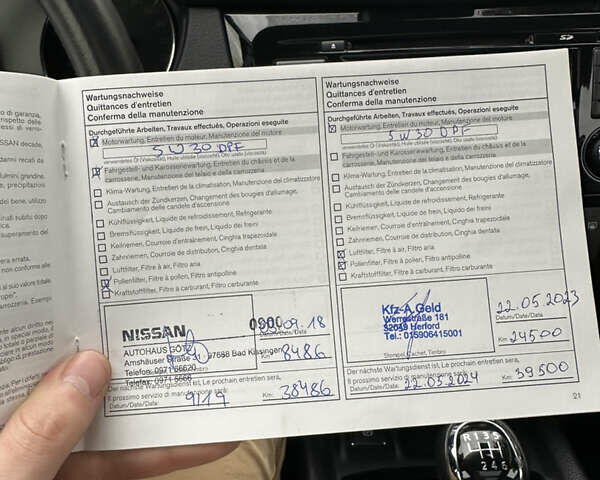 Wartungsnachweise
Quittances d'entretien
Conferma della manutenzione
Durchgeführte Arbeiten, Travaux effectués, Operazioni eseguite
Motorwartung, Entretien du moteur, Manutenzione del motore
5W30 DPF
verwendetes Öl (Viskosität), Huile utilisée (viscosité), Olio usato (viscosità)
Fahrgestell- und Karosseriewartung, Entretien du châssis et de la
carrosserie, Manutenzione del telaio e della carrozzeria
Klima-Wartung, Entretien de la climatisation, Manutenzione del climatizzatore
Austausch der Zündkerzen, Changement des bougies d'allumage,
Cambiamento delle candele d'accensione
Kühlflüssigkeit, Liquide de refroidissement, Refrigerante
Bremsflüssigkeit, Liquide de frein, Liquido dei freni
Keilriemen, Courroie d'entraînement, Cinghia trapezoidale
Zahnriemen, Courroie de distribution, Cinghia dentata
Luftfilter, Filtre à air, Filtro aria
Pollenfilter, Filtre à pollen, Filtro antipolline
Kraftstofffilter, Filtre à carburant, Filtro carburante
NISSAN
AUTOHAUS GÖTZ
Amshäuser Straße 31 · 97688 Bad Kissingen
Telefon: 0971 66620
Telefax: 0971
09.18
Datum/Date/Data:
Km: 8486
Der nächste Wartungsdienst ist, Le prochain entretien sera,
Il prossimo servizio di manutenzione sarà:
Datum/Date/Data: 9.19
Km: 38486
Wartungsnachweise
Quittances d'entretien
Conferma della manutenzione
Durchgeführte Arbeiten, Travaux effectués, Operazioni eseguite
Motorwartung, Entretien du moteur, Manutenzione del motore
5W30 DPF
verwendetes Öl (Viskosität), Huile utilisée (viscosité), Olio usato (viscosità)
Fahrgestell- und Karosseriewartung, Entretien du châssis et de la
carrosserie, Manutenzione del telaio e della carrozzeria
Klima-Wartung, Entretien de la climatisation, Manutenzione del climatizzatore
Austausch der Zündkerzen, Changement des bougies d'allumage,
Cambiamento delle candele d'accensione
Kühlflüssigkeit, Liquide de refroidissement, Refrigerante
Bremsflüssigkeit, Liquide de frein, Liquido dei freni
Keilriemen, Courroie d'entraînement, Cinghia trapezoidale
Zahnriemen, Courroie de distribution, Cinghia dentata
Luftfilter, Filtre à air, Filtro aria
Pollenfilter, Filtre à pollen, Filtro antipolline
Kraftstofffilter, Filtre à carburant, Filtro carburante
Kfz-A.Geld
Werrestraße 181
32049 Herford
Tel.: 015906415001
Stempel, Cachet, Timbro
22.05.2023
Datum/Date/Data:
Km: 24500
Der nächste Wartungsdienst ist, Le prochain entretien sera,
Il prossimo servizio di manutenzione sarà:
Datum/Date/Data: 22.05.2024
Km: 39500
21
R 1 3 5
2 4 6